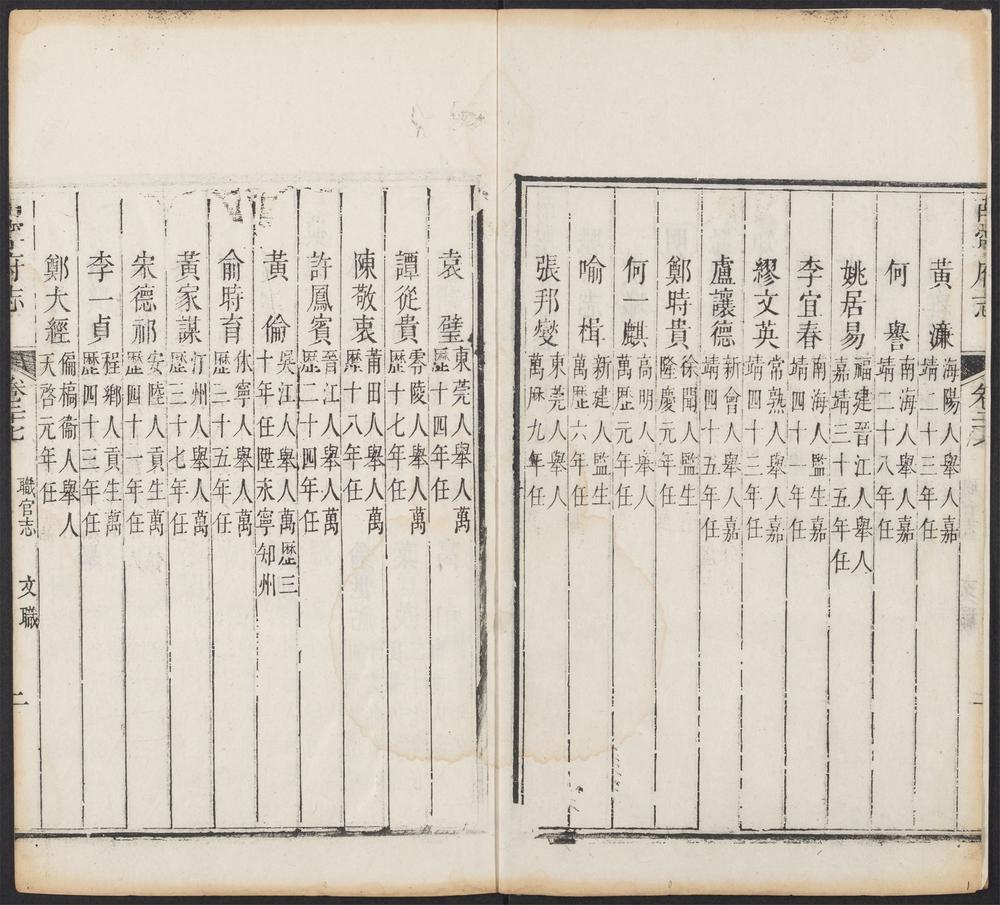 黃濂 海陽人舉人嘉靖二十三年任
何譽 南海人舉人嘉靖二十八年任
姚居易 福建晉江人舉人嘉靖三十五年任
李宜春 南海人監生嘉靖四十一年任
繆文英 常熟人舉人嘉靖四十三年任
盧讓德 新會人舉人嘉靖四十五年任
鄭時貴 徐聞人監生隆慶元年任
何一麒 高明人舉人萬歷元年任
喻楫 新建人監生萬歷六年任
張邦燮 東莞人舉人萬歷九年任
袁璧 東莞人舉人萬歷十四年任
譚從貴 零陵人舉人萬歷十七年任
陳敬衷 莆田人舉人萬歷十八年任
許鳳賓 晉江人舉人萬歷二十四年任
黃倫 吳江人舉人萬歷三十年任陞永寧知州
俞時育 休寧人舉人萬歷三十五年任
黃家謀 汀州人舉人萬歷三十七年任
宋德祁 安陸人貢生萬歷四十一年任
李一貞 程鄉人貢生萬歷四十三年任
鄭大經 偏橋衞人舉人天啓元年任
府志 卷二七 職官志 文職 二